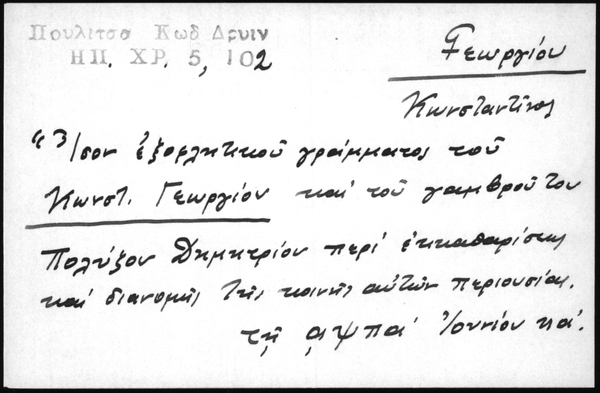 Πουλιτσα Κωδ Δρυιν
ΗΠ. ΧΡ. 5, 102
Γεωργίου
Κωνσταντῖνος
"Ἴσον ἐξοφλητικοῦ γράμματος τοῦ
Κωνστ. Γεωργίου καί τοῦ γαμβροῦ του
Πολύξου Δημητρίου περί ἐκκαθαρίσεως
καί διανομῆς τῆς κοινῆς αὐτῶν περιουσίας.
τῇ ͵αψπα' Ἰουνίου κα'.